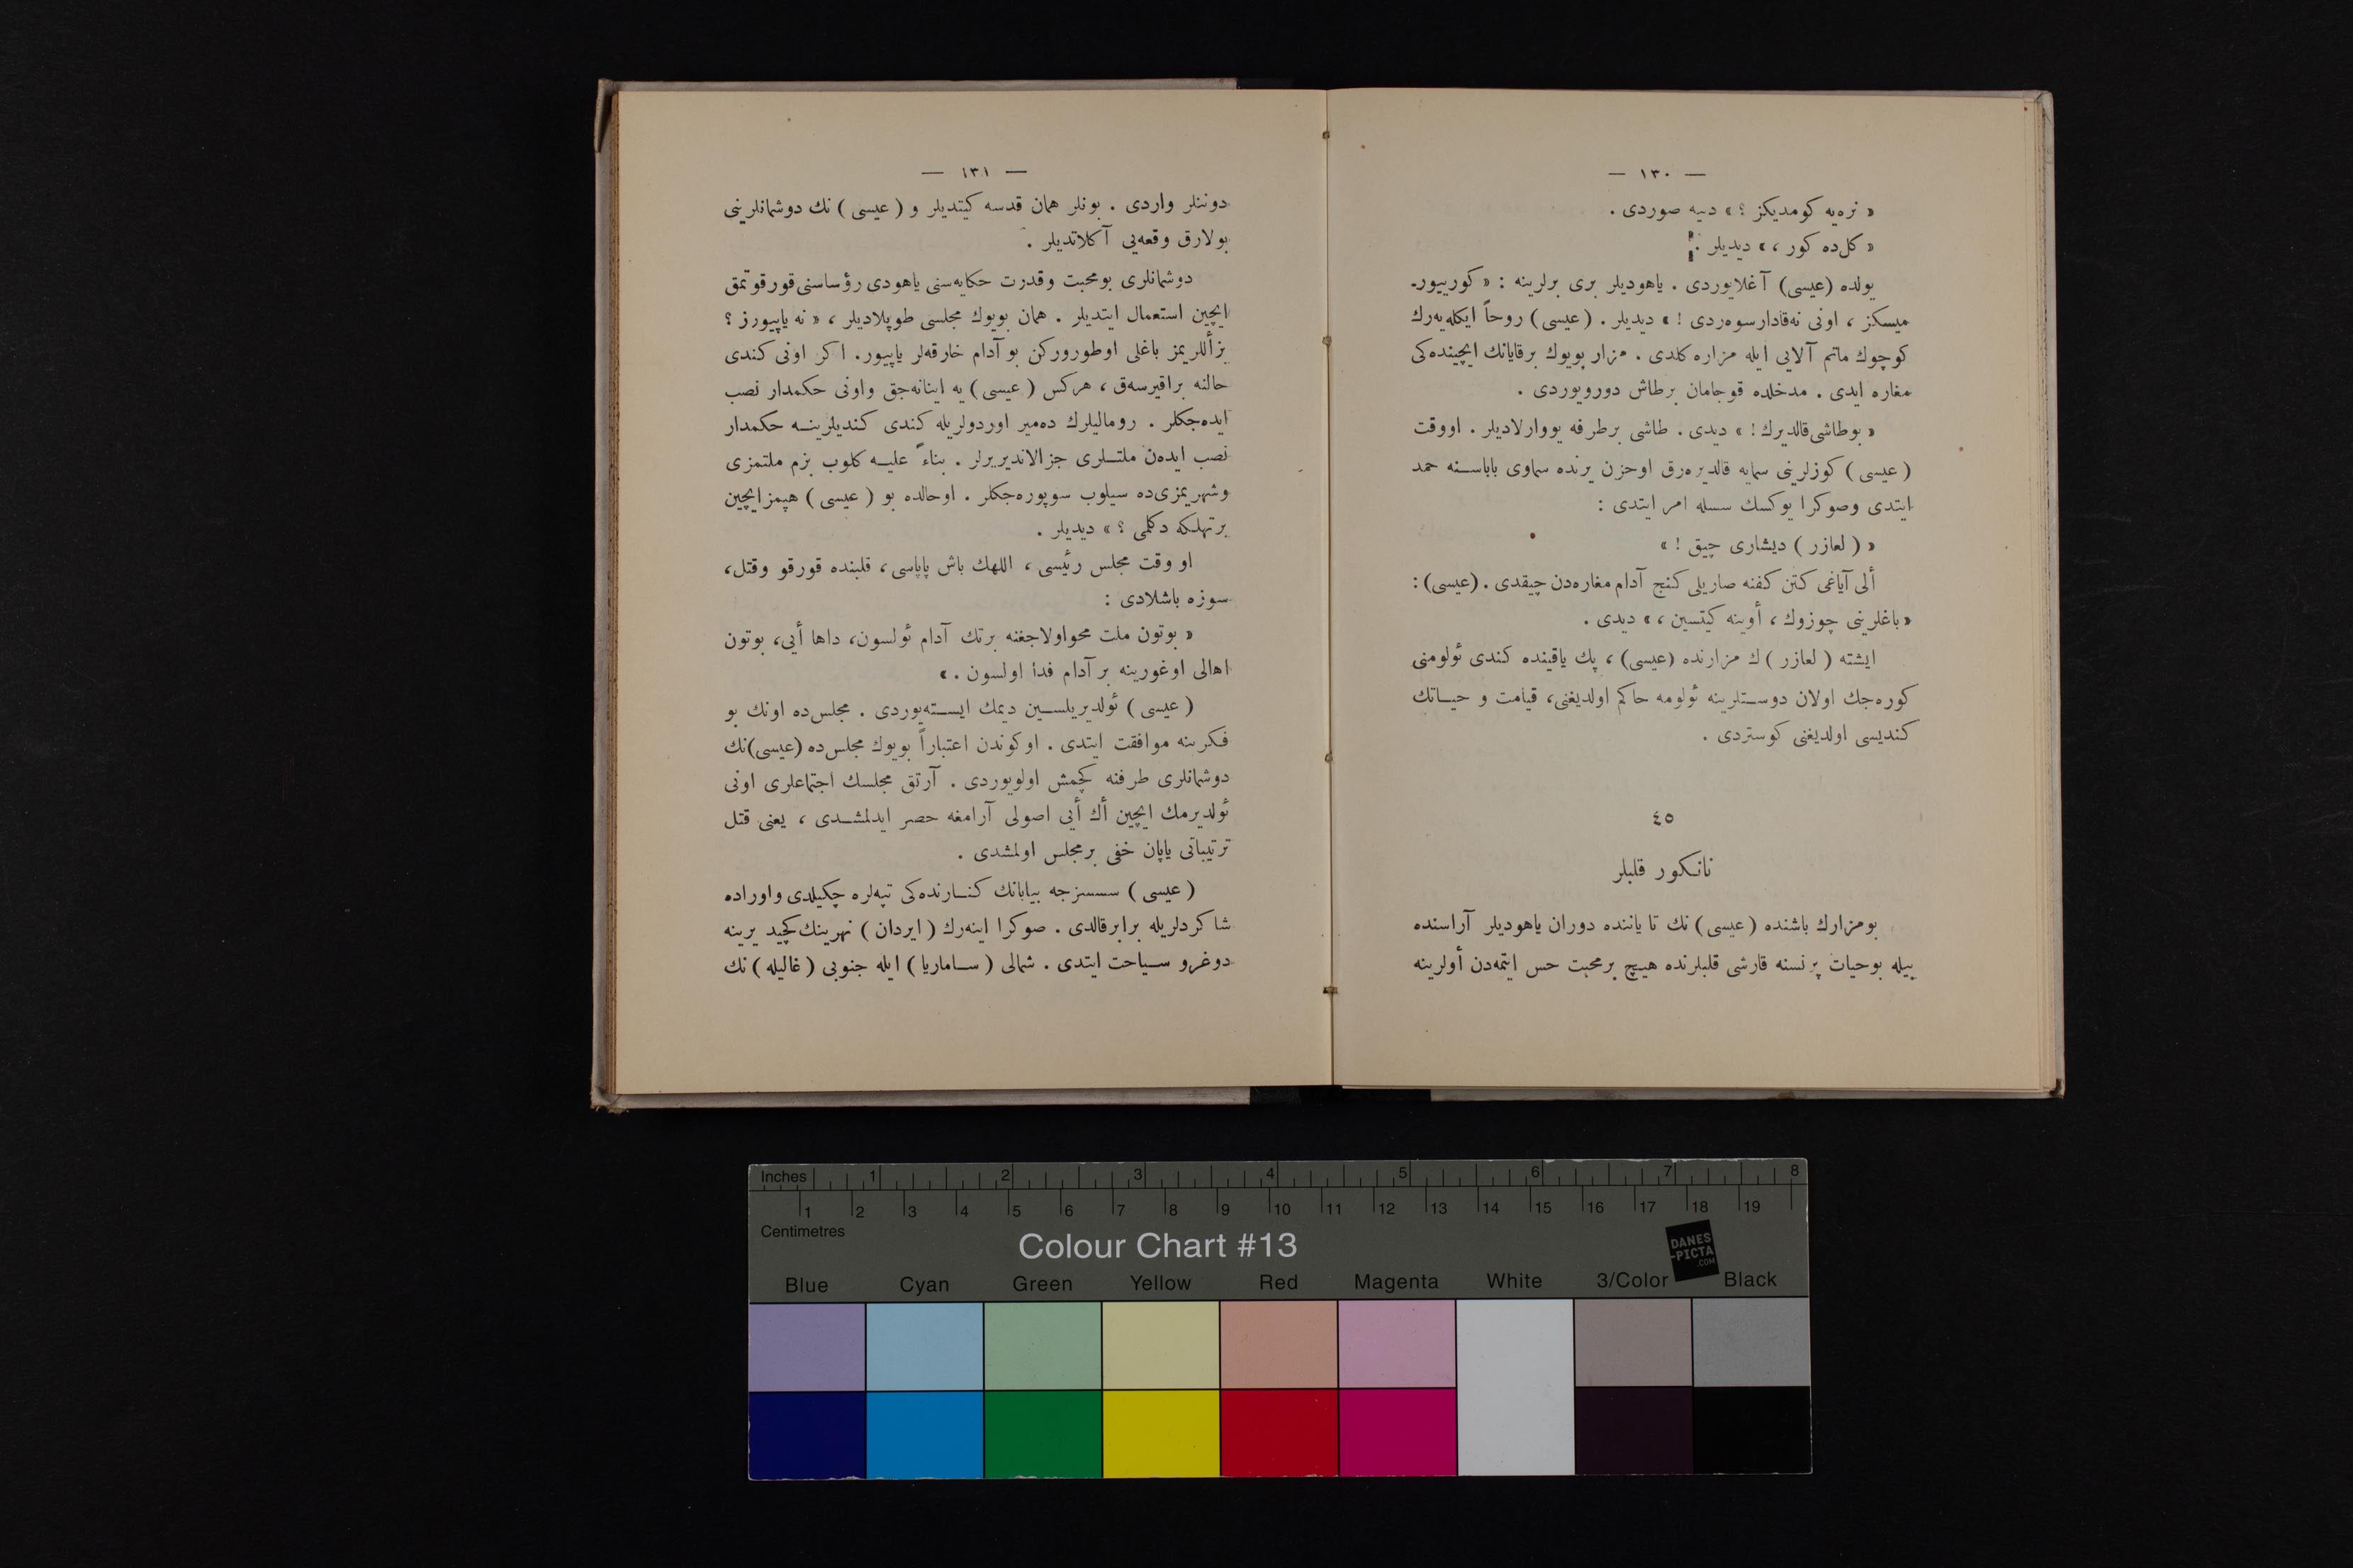 — ١٣٠ —
« نره‌يه كومديكز ؟ » ديه صوردى .
« كل‌ده كور ، » ديديلر .
يولده (عيسى) آغلايوردى . ياهوديلر برى برلرينه : « كورييور-
ميسكز ، اونى نه‌قادار سوه‌ردى ! » ديديلر . (عيسى) روحاً ايكله‌يه‌رك
كوچوك ماتم آلايى ايله مزاره كلدى . مزار بويوك برقايانك ايچينده‌كى
مغاره ايدى . مدخلده قوجامان برطاش دورويوردى .
« بوطاشى قالديرك ! » ديدى . طاشى برطرفه يووارلاديلر . اووقت
(عيسى) كوزلرينى سمايه قالديره‌رق اوحزن يرنده سماوى باباسنه حمد
ايتدى وصوكرا يوكسك سسله امر ايتدى :
« (لعازر) ديشارى چيق ! »
ألى آياغى كتن كفنه صاريلى كنج آدام مغاره‌دن چيقدى . (عيسى) :
« باغلرينى چوزوك ، أوينه كيتسين ، » ديدى .
ايشته (لعازر)ك مزارنده (عيسى) ، پك ياقينده كندى ئولومنى
كوره‌جك اولان دوستلرينه ئولومه حاكم اولديغنى، قيامت و حياتك
كنديسى اولديغنى كوستردى .
٤٥
نانكور قلبلر
بومزارك باشنده (عيسى) نك تا ياننده دوران ياهوديلر آراسنده
بيله بوحيات پرنسنه قارشى قلبلرنده هيچ برمحبت حس ايتمه‌دن أولرينه
— ١٣١ —
دوننلر واردى . بونلر همان قدسه كيتديلر و (عيسى) نك دوشمانلرينى
بولارق وقعه‌يى آكلاتديلر .
دوشمانلرى بومحبت وقدرت حكايه‌سنى ياهودى رؤساسنى قورقوتمق
ايچين استعمال ايتديلر . همان بويوك مجلسى طوپلاديلر ، « نه ياپييورز ؟
بزأللريمز باغلى اوطورورکن بو آدام خارقه‌لر ياپيور. اكر اونى كندى
حالنه براقيرسه‌ق ، هركس (عيسى) يه اينانه‌جق واونى حكمدار نصب
ايده‌جكلر . روماليلرك ده‌مير اوردولريله كندى كنديلرينه حكمدار
نصب ايده‌ن ملتلرى جزالانديريرلر . بناءً عليه كلوب بزم ملتمزى
وشهريمزى‌ده سيلوب سوپوره‌جكلر . اوحالده بو (عيسى) هپمز ايچين
برتهلكه دكلمى ؟ » ديديلر .
او وقت مجلس رئيسى ، اللهك باش پاپاسى ، قلبنده قورقو وقتل،
سوزه باشلادى :
« بوتون ملت محواولاجغنه برتك آدام ئولسون، داها أيى، بوتون
اهالى اوغورينه بر آدام فدا اولسون . »
(عيسى) ئولديريلسين ديمك ايسته‌يوردى . مجلس‌ده اونك بو
فكرينه موافقت ايتدى . اوكوندن اعتباراً بويوك مجلس‌ده (عيسى)نك
دوشمانلرى طرفنه كچمش اولويوردى . آرتق مجلسك اجتماعلرى اونى
ئولديرمك ايچين أك أيى اصولى آرامغه حصر ايدلمشدى ، يعنى قتل
ترتيباتى ياپان خفى برمجلس اولمشدى .
(عيسى) سسسزجه بيابانك كنارنده‌كى تپه‌لره چكيلدى واوراده
شاكردلريله برابرقالدى . صوكرا اينه‌رك (ايردان) نهرينك كچيد يرينه
دوغرو سياحت ايتدى . شمالى (ساماريا) ايله جنوبى (غاليله) نك
Inches 1 2 3 4 5 6 7 8
1 2 3 4 5 6 7 8 9 10 11 12 13 14 15 16 17 18 19
Centimetres
Colour Chart #13
DANES
-PICTA
.COM
Blue Cyan Green Yellow Red Magenta White 3/Color Black